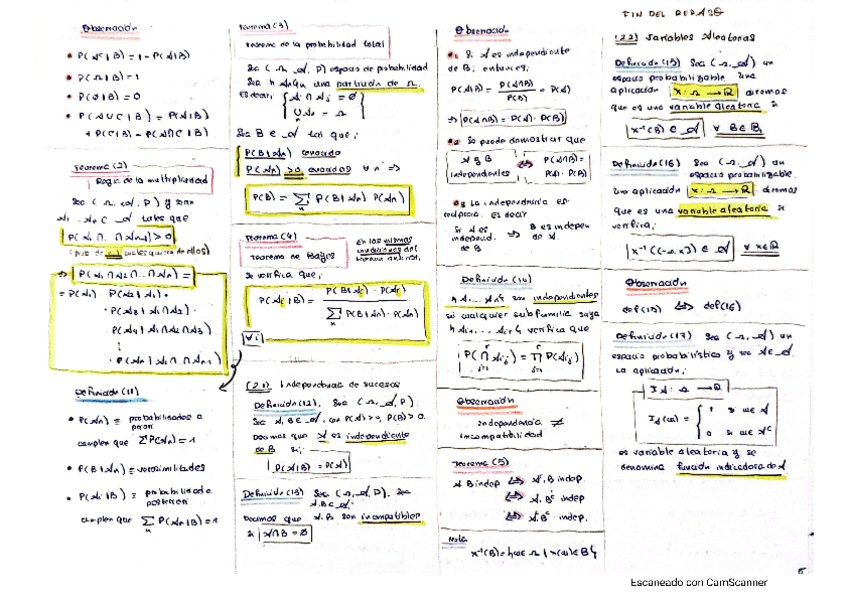 Observación
• P(Aᶜ|B) = 1 - P(A|B)
• P(Ω|B) = 1
• P(∅|B) = 0
• P(A∪C|B) = P(A|B)
+ P(C|B) - P(A∩C|B)
Teorema (2)
Regla de la multiplicidad
Sea (Ω, A, P) y sean
A₁ ... Aₙ ⊂ A tales que
P(A₁ ∩ .. ∩ Aₙ₋₁) > 0
⇒ P(A₁ ∩ A₂ ∩ .. ∩ Aₙ) =
= P(A₁) · P(A₂|A₁) ·
· P(A₃|A₁∩A₂) ·
· P(A₄|A₁∩A₂∩A₃)
⋮
· P(Aₙ|A₁∩..∩Aₙ₋₁)
Definición (11)
• P(Aₙ) ≡ probabilidades a
priori
cumplen que ΣP(Aₙ) = 1
• P(B|Aₙ) ≡ verosimilitudes
• P(Aᵢ|B) ≡ probabilidad a
posteriori
cumplen que Σₙ P(Aₙ|B) = 1
Teorema (3)
Teorema de la probabilidad total
Sea (Ω, A, P) espacio de probabilidad
Sea {Aₙ}ₙ una partición de Ω,
es decir, { Aᵢ ∩ Aⱼ = ∅
∪ₙ Aₙ = Ω
Sea B ∈ A tal que,
P(B|Aₙ) conocido
P(Aₙ) > 0 conocidas ∀ n ⇒
P(B) = Σₙ P(B|Aₙ) · P(Aₙ)
Teorema (4)
Teorema de Bayes
En las mismas
condiciones del
teorema anterior,
Se verifica que,
P(Aᵢ|B) = P(B|Aᵢ) · P(Aᵢ) / Σₙ P(B|Aₙ) · P(Aₙ)
∀ i
(2.1) Independencia de sucesos
Definición (12), Sea (Ω, A, P).
Sea A, B ∈ A, con P(A) > 0, P(B) > 0.
Decimos que A es independiente
de B si,
P(A|B) = P(A)
Definición (13) Sea (Ω, A, P), Sea
A, B ⊂ A.
Decimos que A, B son incompatibles
si A∩B = ∅
Observación
•1 Si A es independiente
de B, entonces,
P(A|B) = P(A∩B) / P(B) = P(A)
⇒ P(A∩B) = P(A) · P(B)
•2 Se puede demostrar que
A y B independientes ⇔ P(A∩B) = P(A) · P(B)
•3 La independencia es
recíproca. Es decir
Si A es independ. de B ⇒ B es indepen de A.
Definición (14)
{A₁ ... Aₙ} son independientes
si cualquier subfamilia suya
{A₁ ... Aᵣ} verifica que
P(∩ Aᵢⱼ) = ∏ P(Aᵢⱼ)
Observación
Independencia ≠
incompatibilidad
Teorema (5)
A, B indep ⇔ Aᶜ, B indep.
⇔ A, Bᶜ indep
⇔ Aᶜ, Bᶜ indep.
Nota
X⁻¹(B) = {ω ∈ Ω | X(ω) ∈ B}
FIN DEL REPASO
(2.2) Variables Aleatorias
Definición (15) Sea (Ω, A) un
espacio probabilizable. Una
aplicación X: Ω → ℝ diremos
que es una variable aleatoria si
X⁻¹(B) ∈ A ∀ B ∈ B₁
Definición (16) Sea (Ω, A) un
espacio probabilizable.
Una aplicación X: Ω → ℝ diremos
que es una variable aleatoria si
verifica,
X⁻¹((-∞, x]) ∈ A ∀ x ∈ ℝ
Observación
def(15) ⇔ def(16)
Definición (17) Sea (Ω, A) un
espacio probabilístico y sea A ∈ A.
La aplicación,
I_A : Ω → ℝ
I_A(ω) = { 1 si ω ∈ A
0 si ω ∈ Aᶜ
es variable aleatoria y se
denomina función indicadora de A
Escaneado con CamScanner